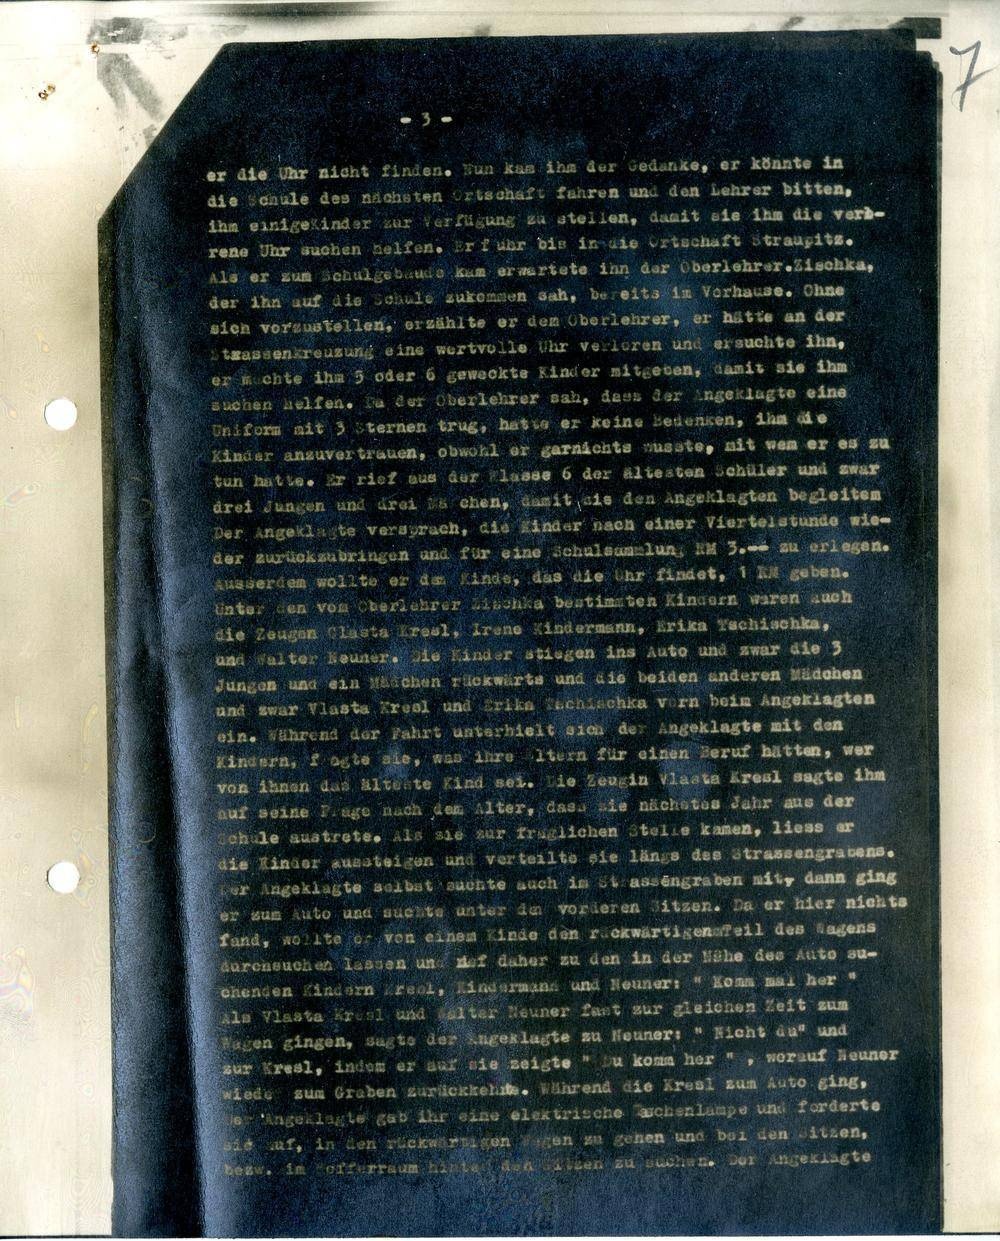 7
- 3 -
er die Uhr nicht finden. Nun kam ihm der Gedanke, er könnte in
die Schule des nächsten Ortschaft fahren und den Lehrer bitten,
ihm einigeKinder zur Verfügung zu stellen, damit sie ihm die verb-
rene Uhr suchen helfen. Er fuhr bis in die Ortschaft Straupitz.
Als er zum Schulgebäude kam erwartete ihn der Oberlehrer.Zischka,
der ihn auf die Schule zukommen sah, bereits im Vorhause. Ohne
sich vorzustellen, erzählte er dem Oberlehrer, er hätte an der
Strassenkreuzung eine wertvolle Uhr verloren und ersuchte ihn,
er möchte ihm 5 oder 6 geweckte Kinder mitgeben, damit sie ihm
suchen helfen. Da der Oberlehrer sah, dass der Angeklagte eine
Uniform mit 3 Sternen trug, hatte er keine Bedenken, ihm die
Kinder anzuvertrauen, obwohl er garnichts wusste, mit wem er es zu
tun hatte. Er rief aus der Klasse 6 der ältesten Schüler und zwar
drei Jungen und drei Mädchen, damit sie den Angeklagten begleitem
Der Angeklagte versprach, die Kinder nach einer Viertelstunde wie-
der zurückzubringen und für eine Schulsammlung RM 3.-- zu erlegen.
Ausserdem wollte er dem Kinde, das die Uhr findet, 1 RM geben.
Unter den vom Oberlehrer Zischka bestimmten Kindern waren auch
die Zeugen Glasta Kresl, Irene Kindermann, Erika Tschischka,
und Walter Neuner. Die Kinder stiegen ins Auto und zwar die 3
Jungen und ein Mädchen rückwärts und die beiden anderen Mädchen
und zwar Vlasta Kresl und Erika Tschischka vorn beim Angeklagten
ein. Während der Fahrt unterhielt sich der Angeklagte mit den
Kindern, fragte sie, was ihre Eltern für einen Beruf hätten, wer
von ihnen das älteste Kind sei. Die Zeugin Vlasta Kresl sagte ihm
auf seine Frage nach dem Alter, dass sie nächstes Jahr aus der
Schule austrete. Als sie zur fraglichen Stelle kamen, liess er
die Kinder aussteigen und verteilte sie längs des Strassengrabens.
Der Angeklagte selbst suchte auch im Strassengraben mit, dann ging
er zum Auto und suchte unter den vorderen Sitzen. Da er hier nichts
fand, wollte er von einem Kinde den rückwärtigen Teil des Wagens
durchsuchen lassen und rief daher zu den in der Nähe des Auto su-
chenden Kindern Kresl, Kindermann und Neuner: " Komm mal her "
Als Vlasta Kresl und Walter Neuner fast zur gleichen Zeit zum
Wagen gingen, sagte der Angeklagte zu Neuner: " Nicht du" und
zur Kresl, indem er auf sie zeigte " Du komm her " , worauf Neuner
wieder zum Graben zurückkehrte. Während die Kresl zum Auto ging,
Der Angeklagte gab ihr eine elektrische Taschenlampe und forderte
sie auf, in den rückwärtigen Wagen zu gehen und bei den Sitzen,
bezw. im Kofferraum hinter den Sitzen zu suchen. Der Angeklagte